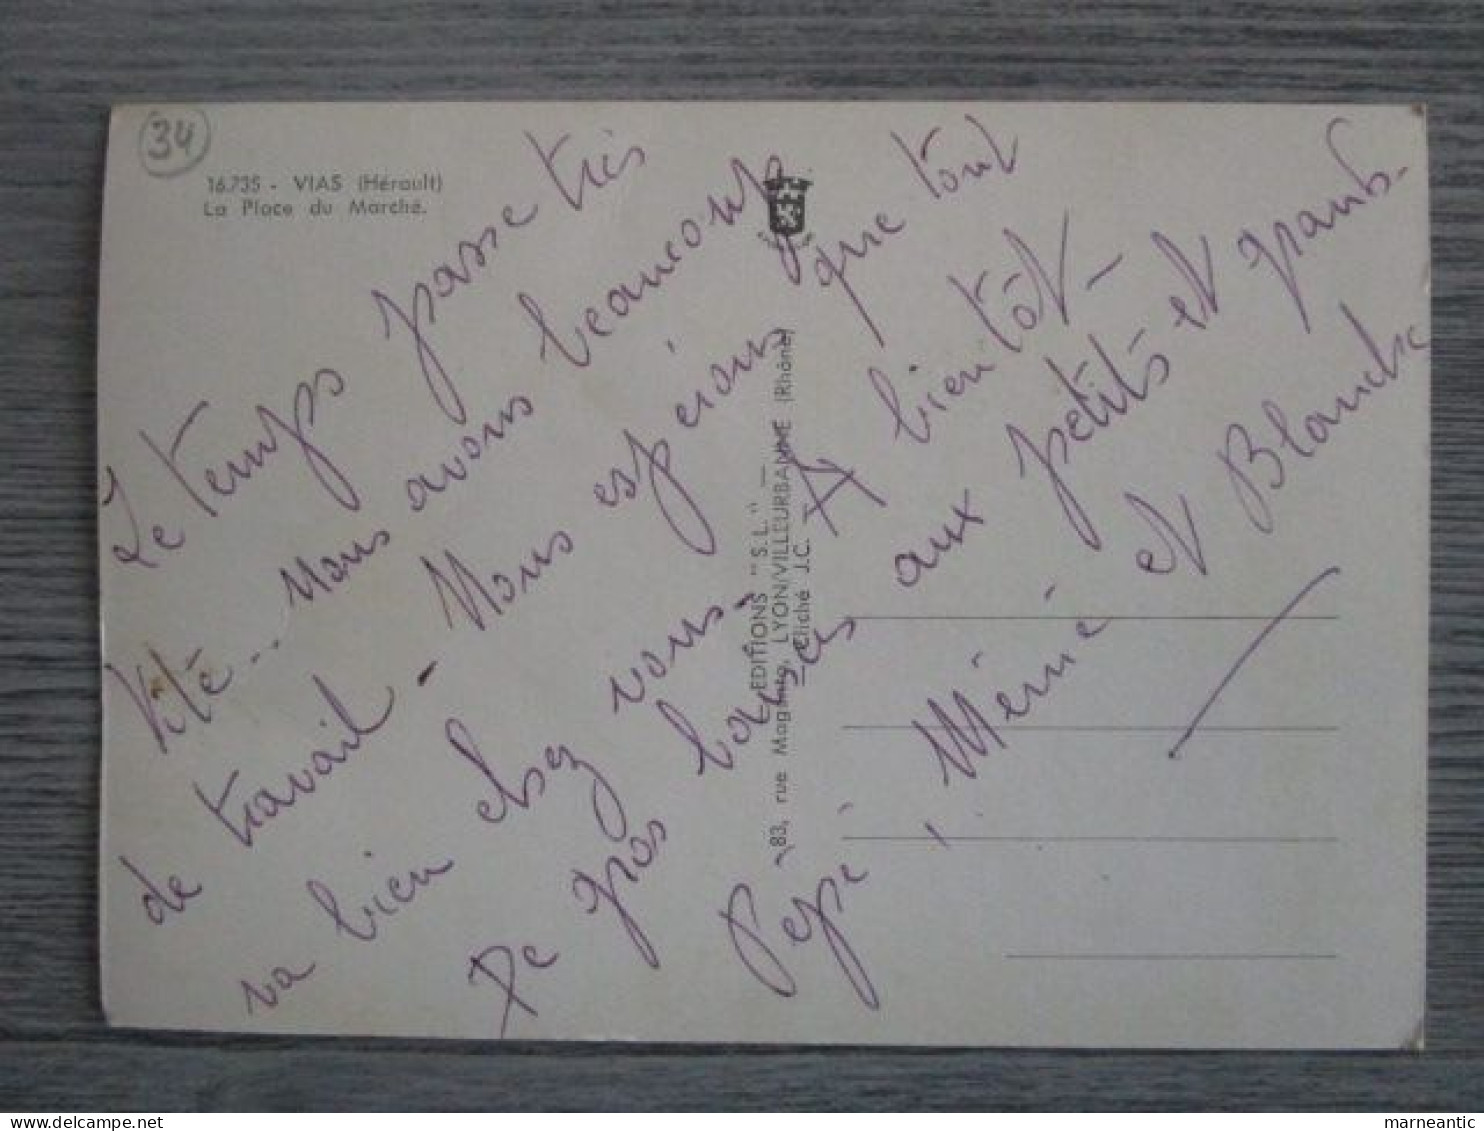 34
16.735 - VIAS (Hérault)
La Place du Marché.
Le temps passe très
vite... nous avons beaucoup
de travail - Nous espérons que tout
va bien chez vous. A bientôt -
De gros baisers aux petits et grands.
Pépé, Mémé et Blanche
EDITIONS "S.L." —
83, rue Magenta, LYON/VILLEURBANNE (Rhône)
Cliché J.C.
marneantic